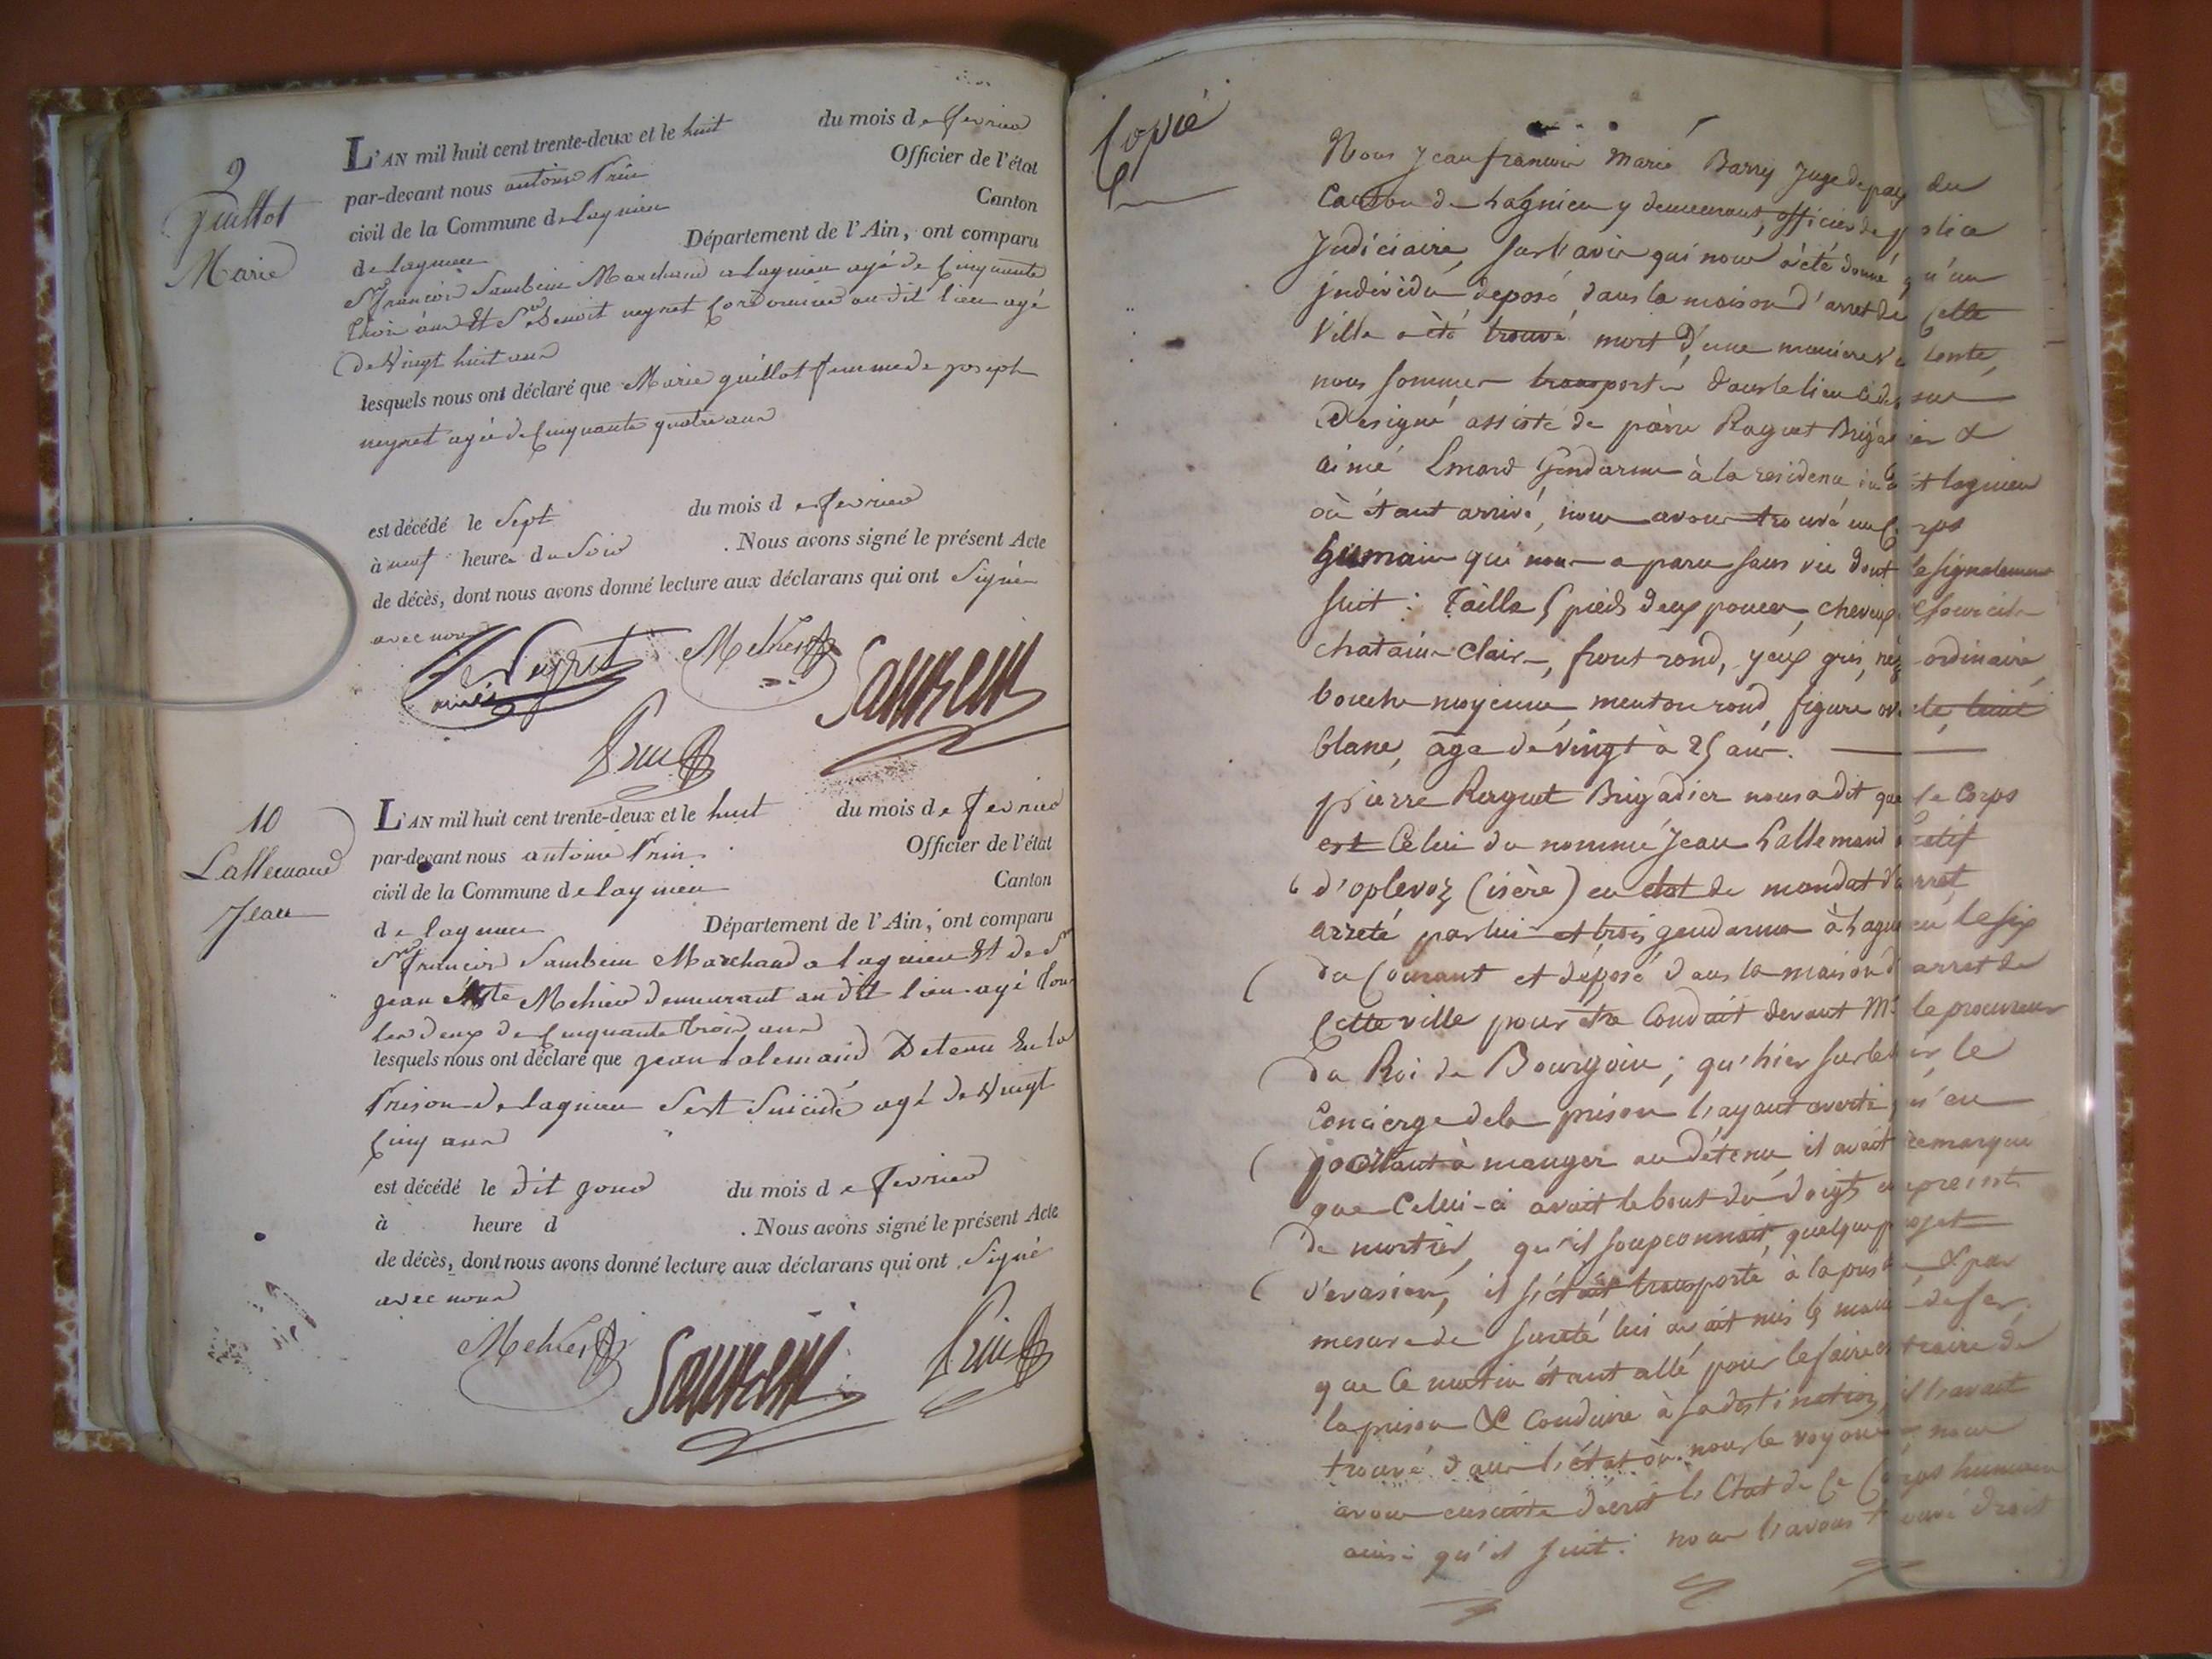 9
Guillot
Marie
L'AN mil huit cent trente-deux et le huit du mois de fevrier
par-devant nous antoine Prin Officier de l'état
civil de la Commune de lagnieu Canton
de lagnieu Département de l'Ain, ont comparu
Sr françois Saunbein Marchand a lagnieu agé de Cinquante
trois ans Et Sr Benoit neyret Cordonnier au dit lieu agé
de Vingt huit ans
lesquels nous ont déclaré que Marie guillot femme de joseph
neyret agée de Cinquante quatre ans
est décédé le Sept du mois de fevrier
à neuf heures du Soir . Nous avons signé le présent Acte
de décès, dont nous avons donné lecture aux déclarans qui ont Signé
avec nous
Neyret Mehier Saunbein
Prin
10
Lallemand
Jean
L'AN mil huit cent trente-deux et le huit du mois de fevrier
par-devant nous antoine Prin Officier de l'état
civil de la Commune de lagnieu Canton
de lagnieu Département de l'Ain, ont comparu
Sr françois Saunbein Marchand a lagnieu Et de Sr
jean Mehier demeurant au dit lieu agé tou
les deux de Cinquante trois ans
lesquels nous ont déclaré que jean lalemand Detenu En la
Prison de lagnieu s'est Suicidé agé de Vingt
Cinq ans
est décédé le dit jour du mois de fevrier
à heure d . Nous avons signé le présent Acte
de décès, dont nous avons donné lecture aux déclarans qui ont Signé
avec nous
Mehier Saunbein Prin
Copié
Nous Jean françois Marie Barry Juge de paix du
Canton de Lagnieu y demeurant, officier de police
Judiciaire, sur l'avis qui nous a été donné qu'un
individu deposé dans la maison d'arret de Cette
Ville a été trouvé mort d'une maniere violente,
nous sommes transporté dans le lieu ci dessus
Designé assisté de pierre Raguet Brigadier &
aimé Gendarme à la residence lagnieu
où étant arrivé, nous avons trouvé un Corps
humain qui nous a paru sans vie dont le signalement
suit : Taille 5 pieds deux pouces, cheveux & sourcils
chatains-clairs, front rond, yeux gris, nez ordinaire,
bouche moyenne, menton rond, figure ovale, teint
blanc, age de vingt à 25 ans.
pierre Raguet Brigadier nous a dit que le Corps
est Celui du nommé Jean Lallemand natif
d'optevoz (isère) en etat de mandat d'arret,
arreté par lui et trois gendarmes à Lagnieu le six
du Courant et déposé dans la maison d'arret de
Cette ville pour être Conduit devant Mr le procureur
du Roi de Bourgoin ; qu'hier sur le soir, le
Concierge de la prison l'ayant averti qu'en
portant à manger au détenu, il avait remarqué
que Celui-ci avait le bout du doigts empreints
de mortier, qu'il soupconnait quelque projet
d'evasion, il s'était transporté à la prison & par
mesure de sureté lui avait mis les mains de fer,
que Ce matin étant allé pour le faire extraire de
la prison & Conduire à sa destination, il l'avait
trouvé dans l'état où nous le voyons nous
avons ensuite décrit l'Etat de Ce Corps humain
ainsi qu'il suit : nous l'avons trouvé droit